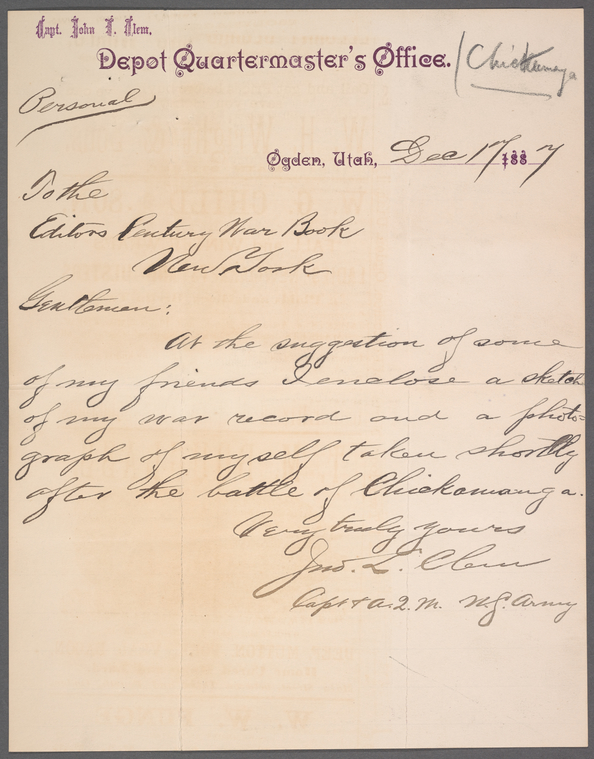 Capt. John L. Clem,
Depot Quartermaster's Office.
Chickamauga
Personal
Ogden, Utah, Dec 17 1887
To the
Editors Century War Book
New York
Gentlemen:
At the suggestion of some
of my friends I enclose a sketch
of my war record and a photo=
graph of myself taken shortly
after the battle of Chickamauga.
Very truly yours
Jno. L. Clem
Capt & A.Q.M. U.S. Army